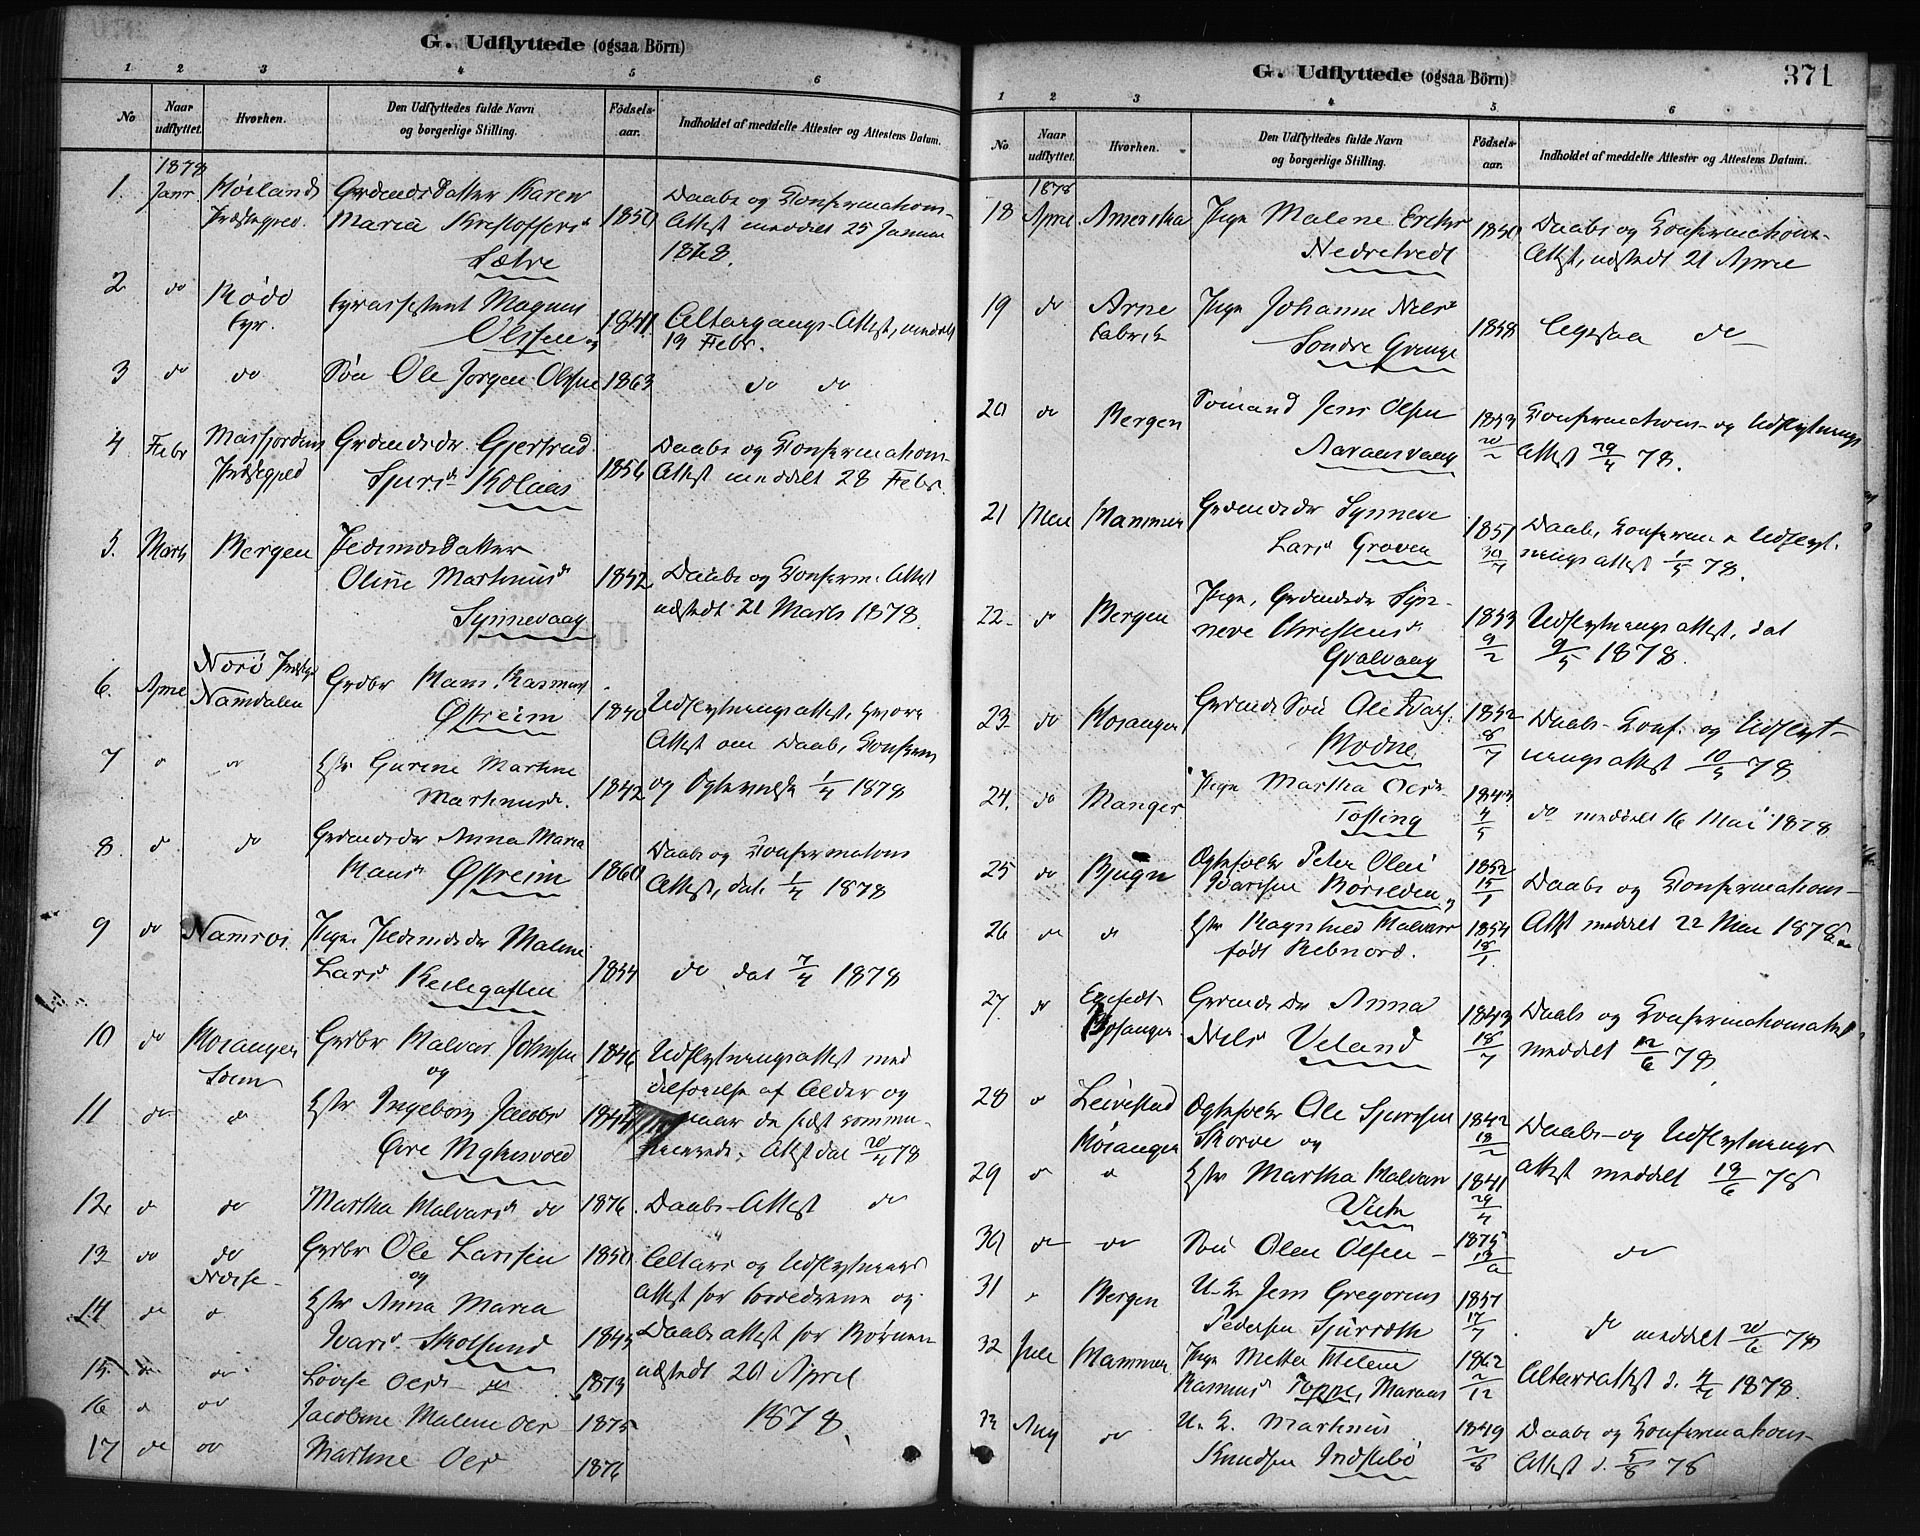 G. Udflyttede (ogsaa Börn)
1 2 3 4 5 6
No
Naar udflyttet.
Hvorhen.
Den Udflyttedes fulde Navn og borgerlige Stilling.
Födsels-aar.
Indholdet af meddelte Attester og Attestens Datum.
1878
1. Janr Præstegjed. Grdmdsdatter Karen
Maria Kristoffersd Sætre
1850
Daabs og Confirmations-
Attest meddelt 25 Januar
1878.
2 do Rödö Magnus
Olssen og
1841
Altergangs-Attest, meddelt
19 Febr.
3 do do Sön Ole Jörgen Olssen 1863 do do
4 Febr Masfjordens
Præstegjed
Grdmdsdr Gjertrud
Sjursd Kolaas
1856
Daabs og Confirmations-
Attest meddelt 28 Febr.
5. Marts Bergen
Oline Martinusd
Synnevaag
1852
Daabs og Confirm. Attest
udstedt 21 Marts 1878.
6. April Namdalen
Grdbr Hans Rasmus.
Østreim
1840
Udflytningsattest,
Attest om Daab, Confirm
7 do Gurine Martine
Martinusd.
1842
og Ægtevielse 1/4 1878
8. do do Grdmdsdr Anna Maria
Hansd Østreim
1860
Daabs og Confirmations
Attest, dat. 1/4 1878
9 do Namsos Pige, Malene
Larsd
1854
do dat 7/4 1878
10 do Hosanger
Grdbr Halvar Johnsen
og
1846
Udflytningsattest med
tilföielse af Alder og
11 do do Ingeborg Jacobsd
Øvre Myksvold
1844
naar de sidst commu-
nicerede. Attest dat 20/4 78
12. do do Martha Halvarsd do 1876. Daabs-Attest do
13 do do Grdbr Ole Larssen
og
1850
Altars og Udflytnings
attest for Forældrene og
14 do do Anna Maria
Ivarsd. Skolsund
1845
Daabsattest for Börnene
udstedt 20 April
1878.
15. do do Lovise Olsd do 1873
16 do do Jacobine Malene Olsd 1875
17 do do Martine Olsd 1876
G. Udflyttede (ogsaa Börn)
371
1 2 3 4 5 6
No
Naar udflyttet.
Hvorhen.
Den Udflyttedes fulde Navn og borgerlige Stilling.
Födsels-aar.
Indholdet af meddelte Attester og Attestens Datum.
1878
18 April Amerika Pige Malene Ericksd
Nedretvedt
1850
Daabs og Confirmations-
Attest, udstedt 21 April
19 do Arne
Fabrik
Pige Johanne Nilsd
Söndre Gvinge
1858
Ligesaa do
20 do Bergen Sömand Jens Olsen
1853
20/2
Confirmations- og Udflytnings
Attest 29/4 78.
21 Mai Hammer Grdmdsdr Synneve
Larsd Groven
1851
30/7
Daabs, Confirm. & Udflyt-
ningsattest 1/5 78.
22. do Bergen Pige, Grdmdsdr Syn-
neve Christensd
Gvalvaag
1853
9/2
Udflytningsattest, dat
9/5 1878.
23. do Hosanger Grdmds Sön Ole Ivars.
Modne.
1852
8/7
Daabs- Conf. og Udflyt-
ningsattest 10/5 78
24. do Manger Pige Martha Olsd
Tosling
1843
4/5
do meddelt 16 Mai 1878.
25 do Bjugn Ægtefolk Peter Olai
Ivarssen
1852
15/1
Daabs og Confirmations-
26 do do Ragnhild Halvarsd
födt Rebnord.
1854
18/1
Attst meddelt 22 Mai 1878.
27. do
Hosanger
Grdmds Dr Anna
Nilsd Veland
1843
18/7
Daabs og Confirmationsattest
meddelt 12/6 78.
28 do
Hosanger
Ægtefolk Ole Sjursen
Skorve og
1842
18/2
Daabs- og Udflytnings
attest meddelt 19/6 78
29 do do Martha Halvars
1841
29/4
30 do do Sön Olai Olsen
1875
do
31 Bergen U.K. Jens Gregorius
Pedersen
1851
17/7
do meddelt 20/6 78
32 Juli Hammer Pige Mette Helene
Rasmusd
1862
2/12
1878.
33 Aug do U.K. Martinus
Knudsen Indsebö
1849
2/8
Daabs og Confirmations-
Attest d. 5/8 78